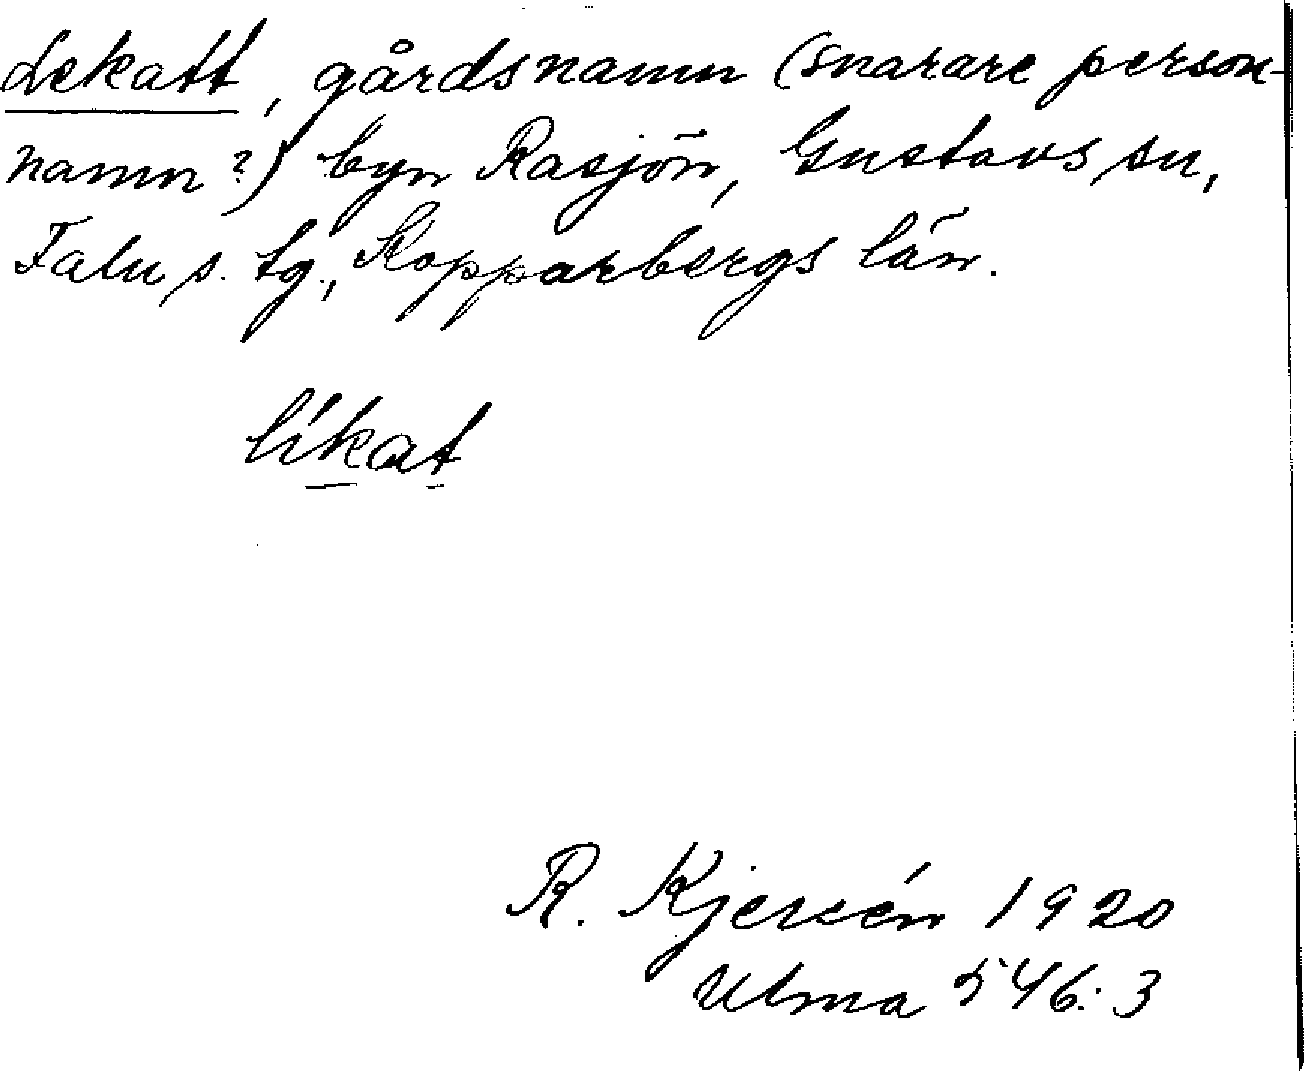 Lekatt, gårdsnamn (snarare person-
namn?) byn Rasjön, Gustavs sn,
Falu s. tg., Kopparbergs län.
líkat
R. Kjersén 1920
Ulma 546:3